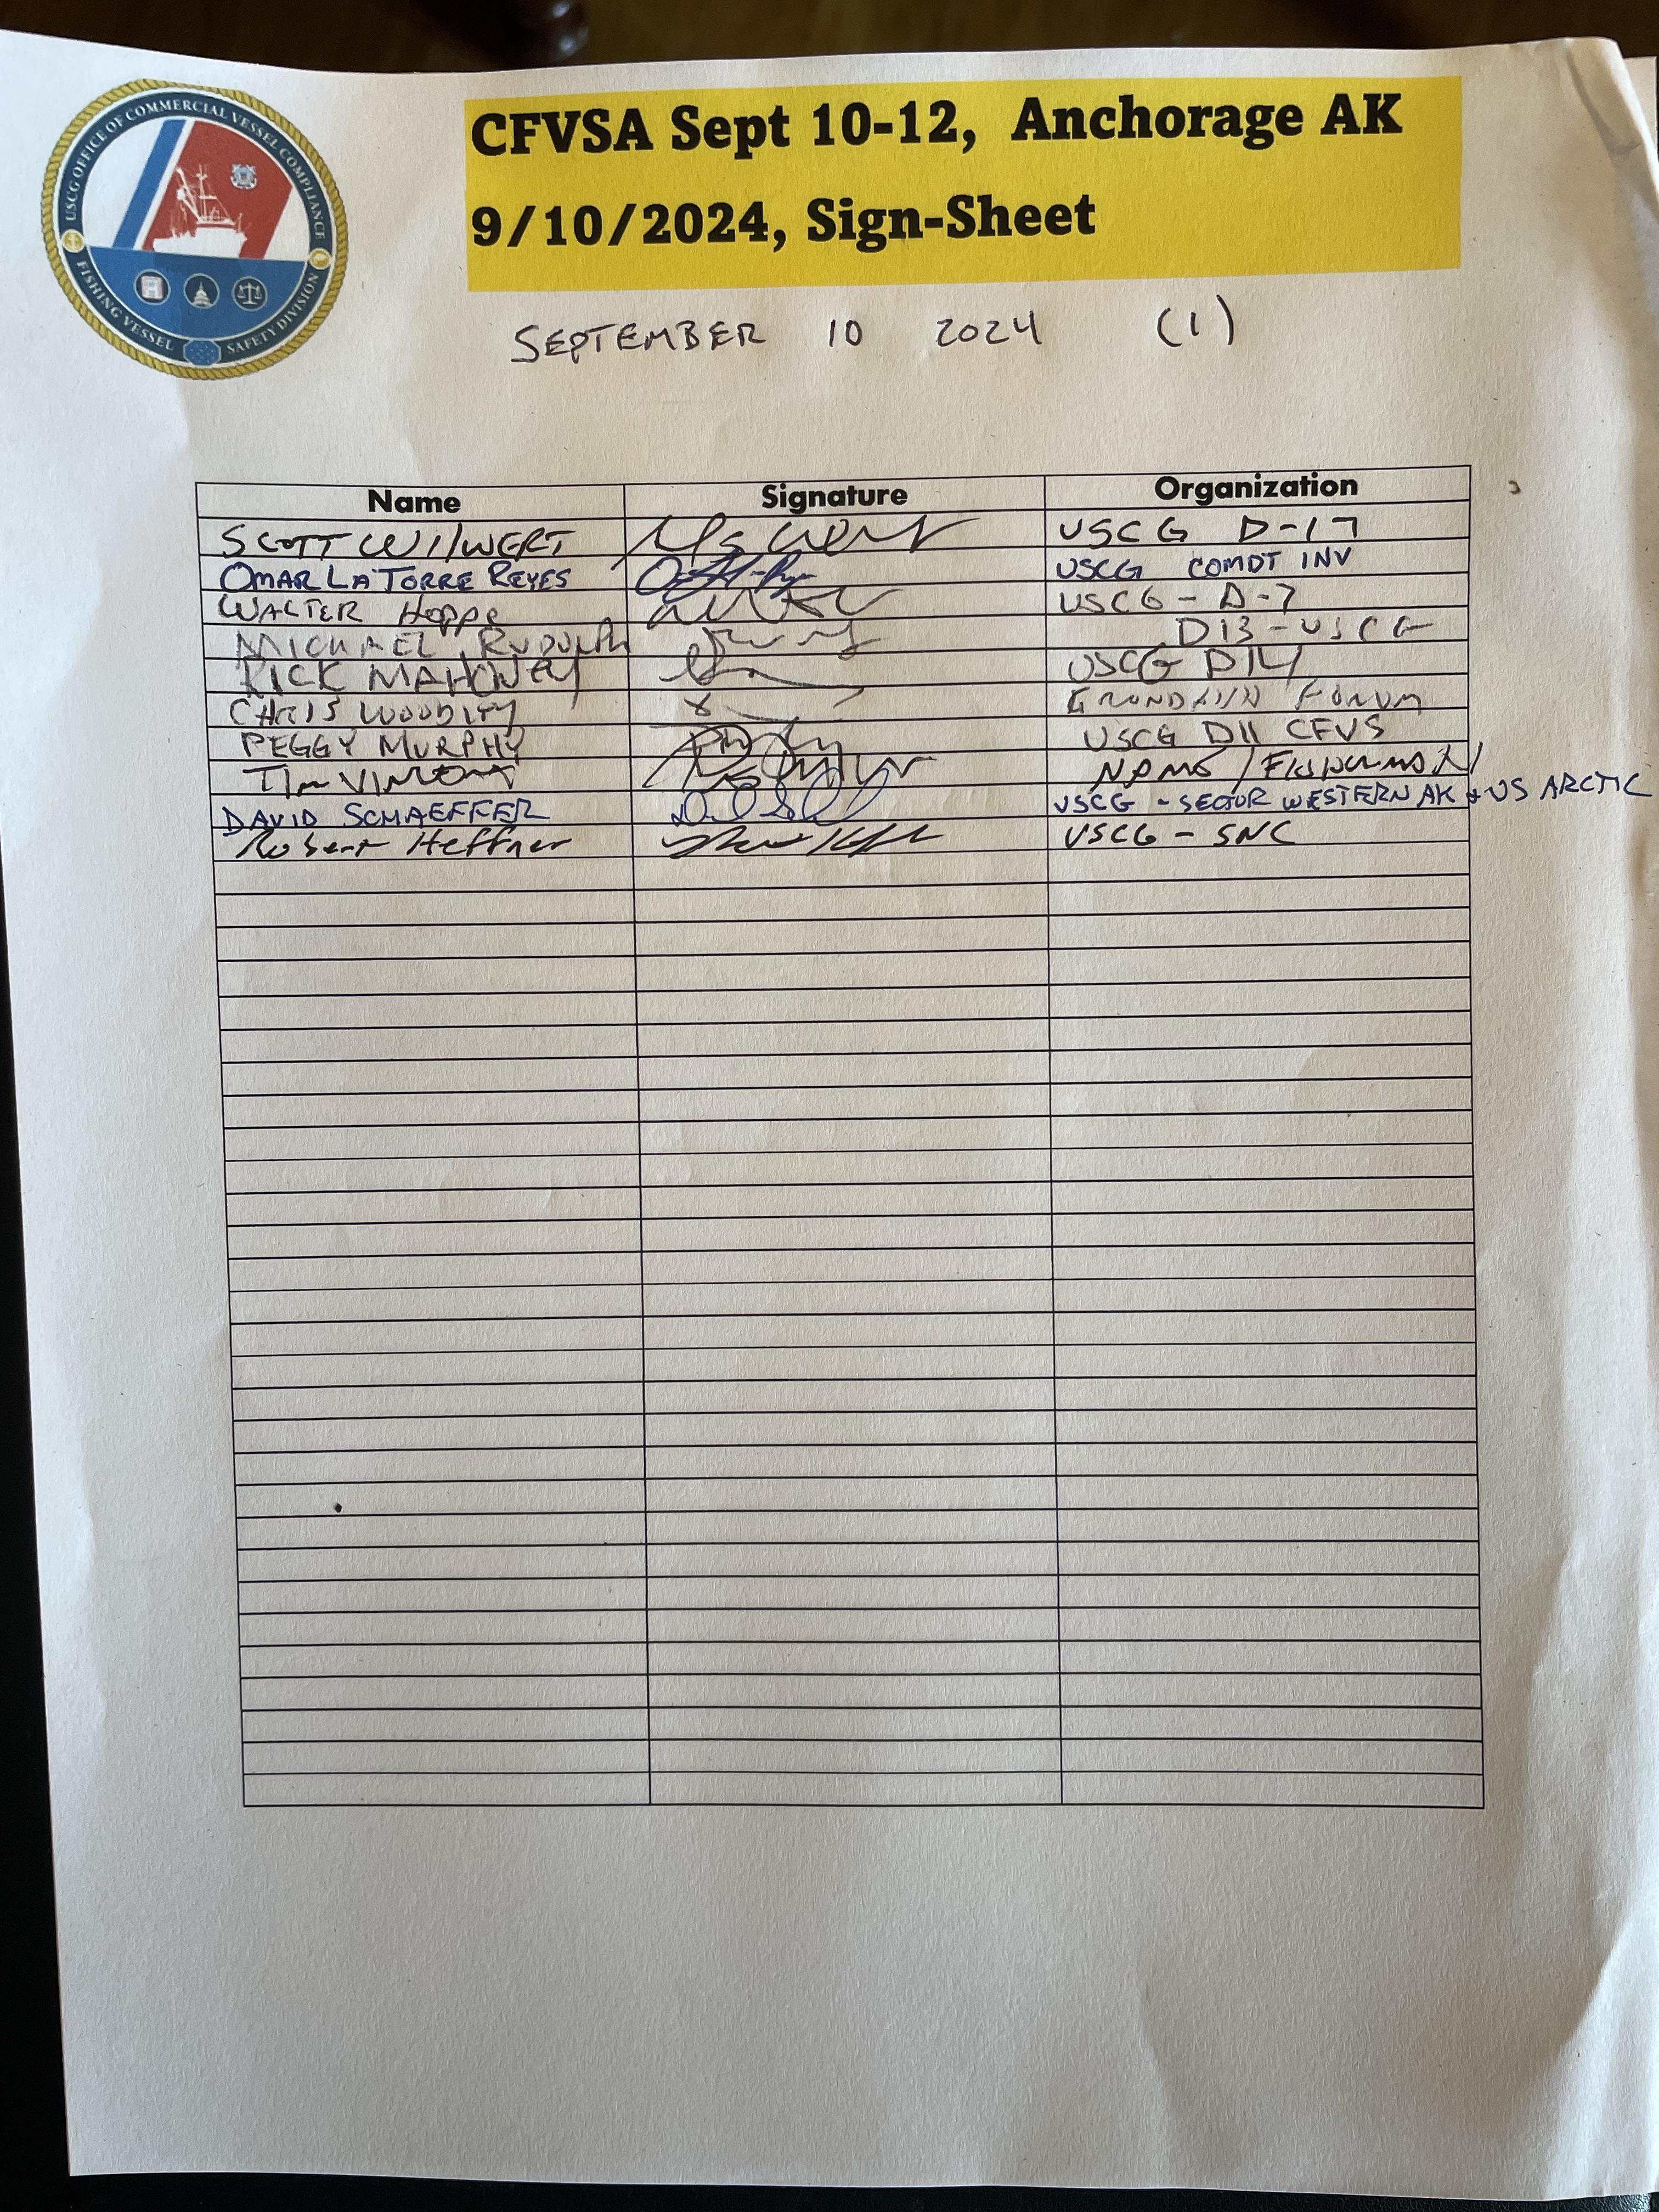 USCG OFFICE OF COMMERCIAL VESSEL COMPLIANCE
FISHING VESSEL SAFETY DIVISION
CFVSA Sept 10-12, Anchorage AK
9/10/2024, Sign-Sheet
SEPTEMBER 10 2024 (1)
Name Signature Organization
SCOTT WILWERT USCG D-17
OMAR LA TORRE REYES USCG COMDT INV
WALTER HOPPE USCG - D-7
MICHAEL RUDOLPH D13 - USCG
RICK MAHONEY USCG D14
CHRIS WOODLEY FORUM
PEGGY MURPHY USCG D11 CFVS
TIM VINCENT
DAVID SCHAEFFER USCG - SECTOR WESTERN AK & US ARCTIC
Robert Heffner USCG - SNC